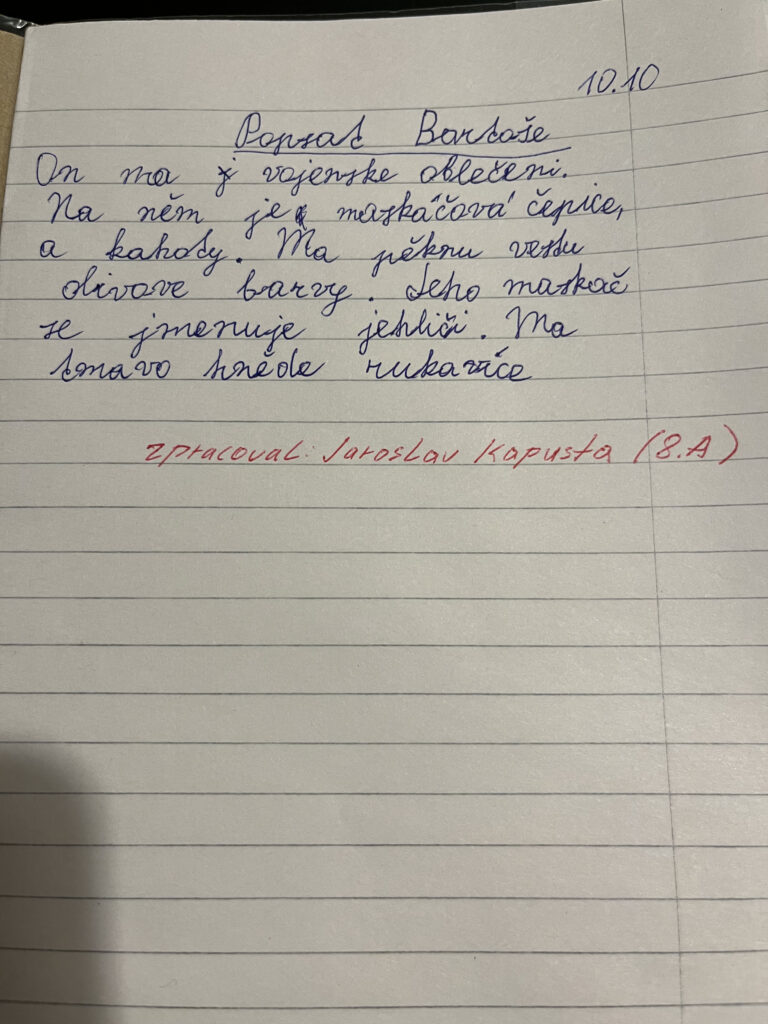 10.10
Popsat Bartoše
On ma vojenske oblečeni.
Na něm je maskáčová čepice,
a kahoty. Ma pěknu vestu
olivove barvy. Jeho maskač
se jmenuje jehliči. Ma
tmavo hněde rukavice
zpracoval: Jaroslav Kapusta (8.A)